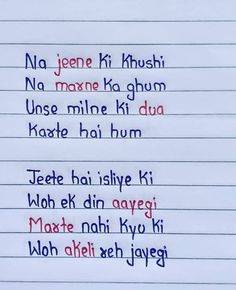 Na jeene Ki Khushi
Na marne Ka ghum
Unse milne Ki dua
Karte hai hum
Jeete hai isliye Ki
Woh ek din aayegi
Marte nahi Kyo Ki
Woh akeli reh jayegi